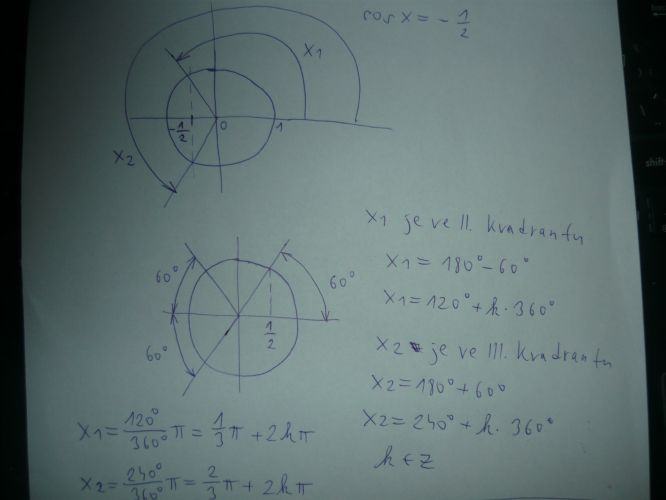 cos x = - 1/2
x1
-1/2 0 1
x2
x1 je ve II. kvadrantu
60° 60°
x1 = 180° - 60°
x1 = 120° + k · 360°
1/2
60°
x2 je ve III. kvadrantu
x2 = 180° + 60°
x2 = 240° + k · 360°
k ∈ Z
x1 = 120°/360° π = 1/3 π + 2kπ
x2 = 240°/360° π = 2/3 π + 2kπ
shift